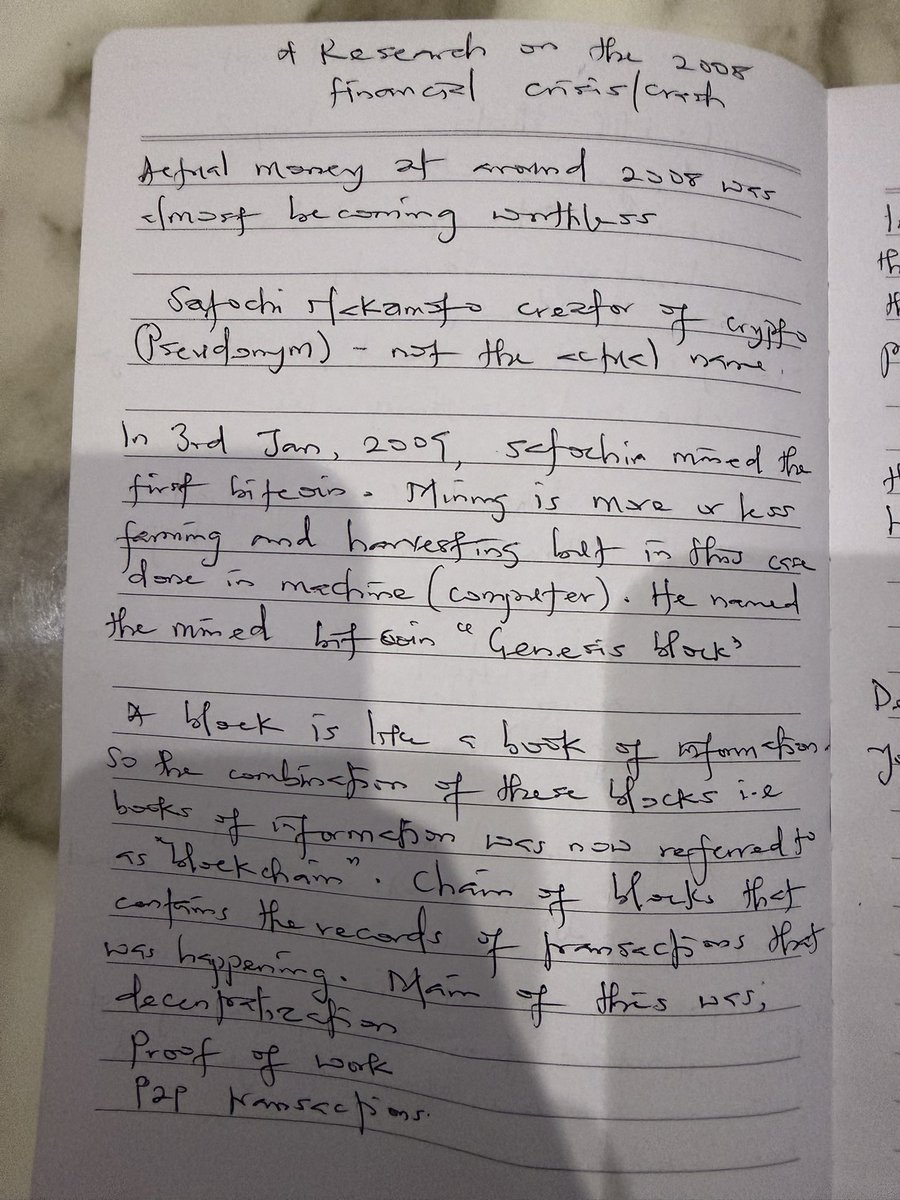 Research on the 2008
financial crisis/crash
Actual money at around 2008 was
almost becoming worthless
Satochi creator of crypto
(Pseudonym) - not the actual name.
In 3rd Jan, 2009, Satochin mined the
first bitcoin. Mining is more or less
farming and harvesting but in this case
done in machine (computer). He named
the mined bit coin "Genesis block"
A block is like a book of information.
So the combination of these blocks i.e
books of information was now referred to
as "blockchain". Chain of blocks that
contains the records of transactions that
was happening. Main of this was,
decentralization
Proof of work
P2P transactions.
In
th
th
P
th
Ye